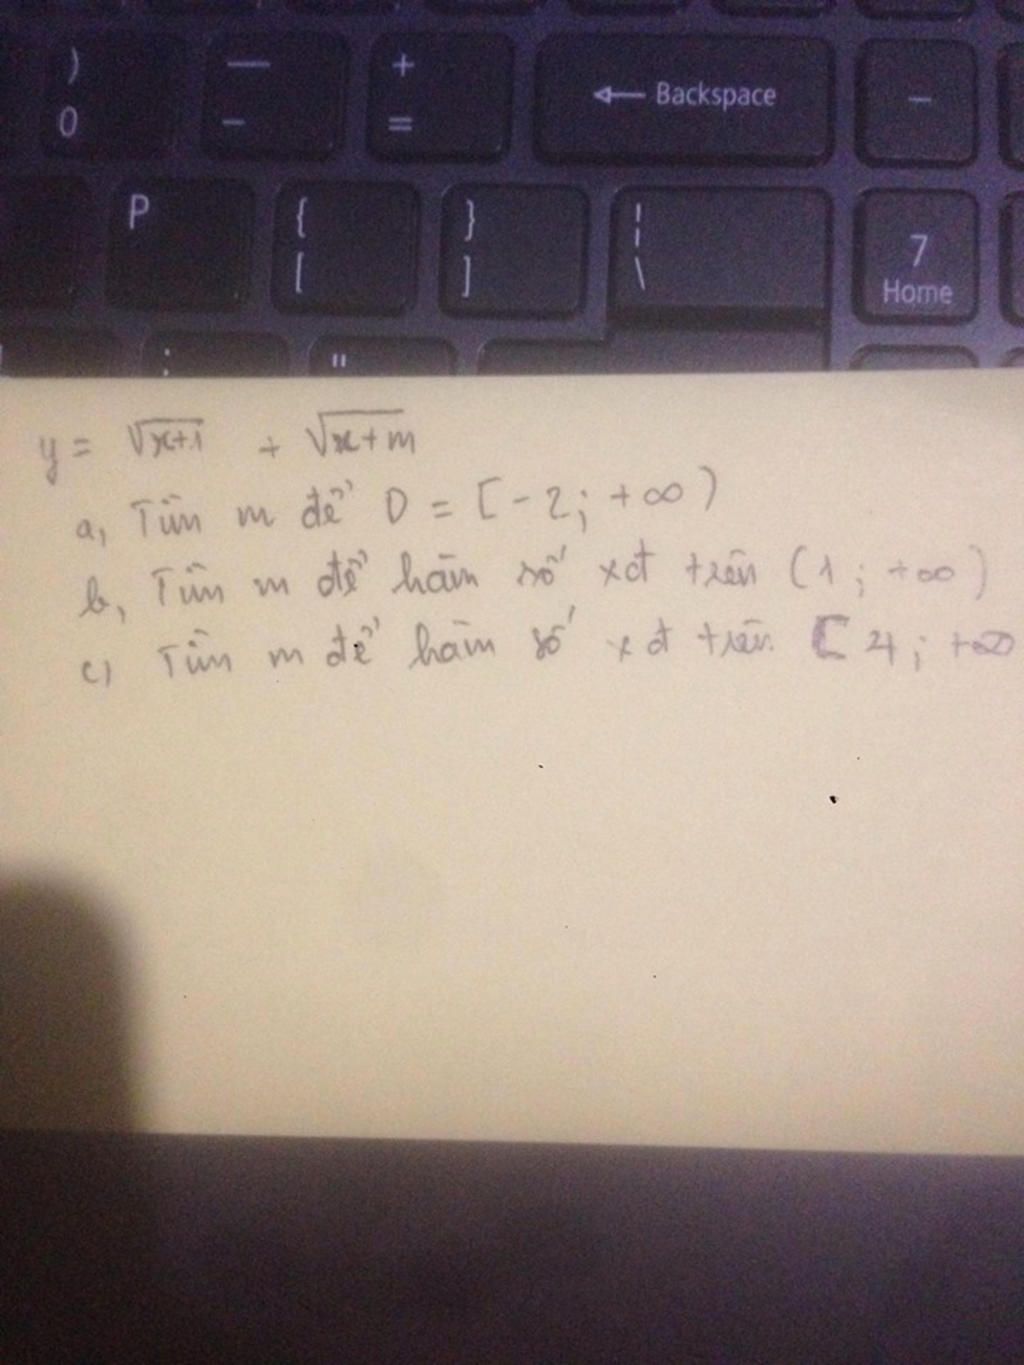 ) — + ← Backspace −
0 - =
P { } ¦ 7
[ ] \ Home
: "
y = √x+1 + √x+m
a, Tìm m để D = [-2; +∞)
b, Tìm m để hàm số xđ trên (1; +∞)
c, Tìm m để hàm số xđ trên [4; +∞